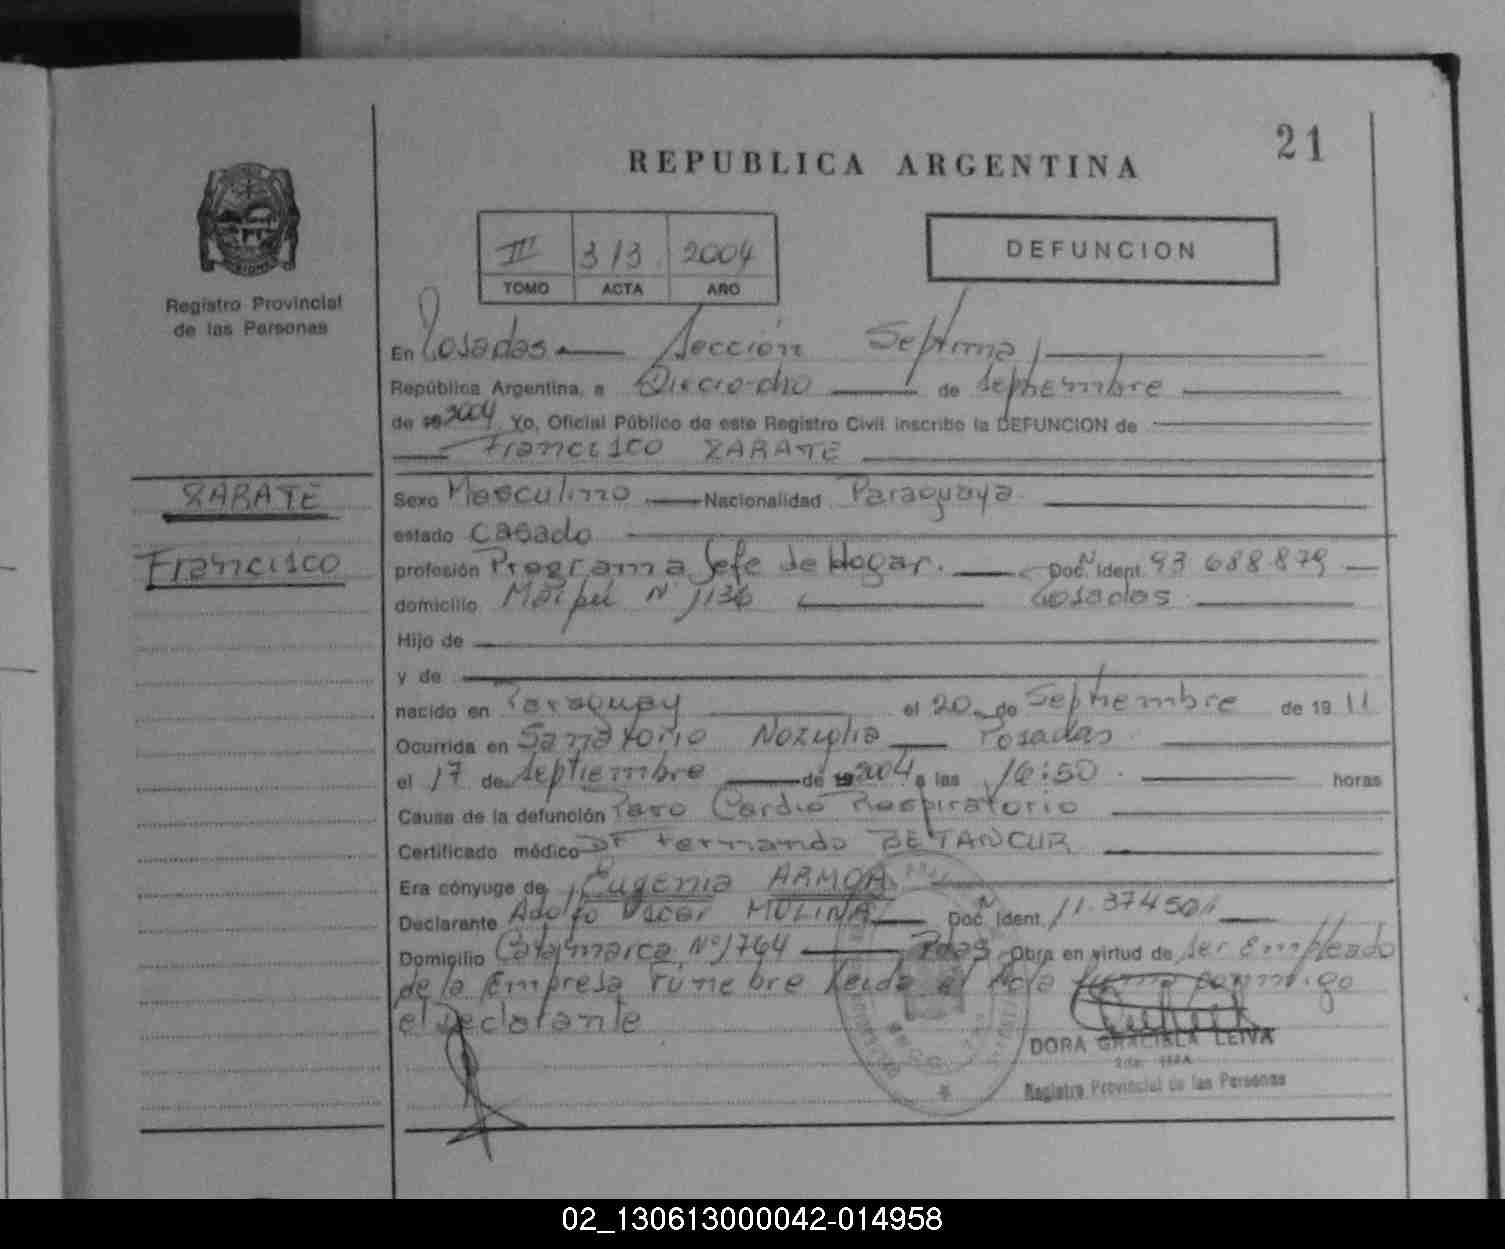 21
REPUBLICA ARGENTINA
III 313 2004
TOMO ACTA AÑO
DEFUNCION
Registro Provincial
de las Personas
En Posadas Sección Septima
República Argentina, a Dieciocho de Septiembre
de 19 2004 Yo, Oficial Público de este Registro Civil inscribo la DEFUNCION de
Francisco ZARATE
ZARATE
Francisco
Sexo Masculino Nacionalidad Paraguaya
estado Casado
profesión Programa Jefe de Hogar. Doc. N Ident. 93 688.879
domicilio Maipú N° 1136 Posadas
Hijo de
y de
nacido en Paraguay el 20 de Septiembre de 19 11
Ocurrida en Sanatorio Noziglia Posadas
el 17 de Septiembre de 19 2004 a las 16:50 horas
Causa de la defunción Paro Cardio Respiratorio
Certificado médico Dr Fernando BETANCUR
Era cónyuge de Eugenia ARMOA
Declarante Adolfo Oscar MOLINA Doc. N Ident. 11.374501
Domicilio Catamarca N° 1764 Pdas Obra en virtud de ser Empleado
de la Empresa Funebre Leida el Acta firma conmigo
el declarante
DORA GRACIELA LEIVA
Registro Provincial de las Personas
02_130613000042-014958